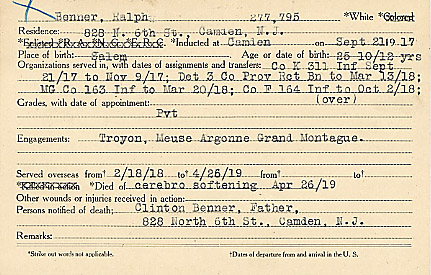 Benner, Ralph 277,795 *White *Colored
Residence: 828 N. 6th St., Camden, N.J.
*Enlisted *R.A. *N.G. *E.R.C. *Inducted at Camden on Sept 21 19 17
Place of birth: Salem Age or date of birth: 25 10/12 yrs
Organizations served in, with dates of assignments and transfers: Co K 311 Inf Sept
21/17 to Nov 9/17; Det 3 Co Prov Rct Bn to Mar 13/18;
MG Co 163 Inf to Mar 20/18; Co F 164 Inf to Oct 2/18;
Grades, with date of appointment: (over)
Pvt
Engagements: Troyon, Meuse Argonne Grand Montague.
Served overseas from† 2/18/18 to† 4/25/19 from† to†
*Killed in action *Died of cerebro softening Apr 26/19
Other wounds or injuries received in action:
Persons notified of death: Clinton Benner, Father,
828 North 6th St., Camden, N.J.
Remarks:
*Strike out words not applicable. †Dates of departure from and arrival in the U. S.